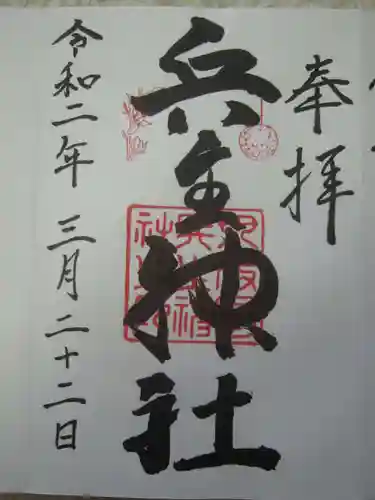 奉拝
兵主神社
令和二年三月二十二日